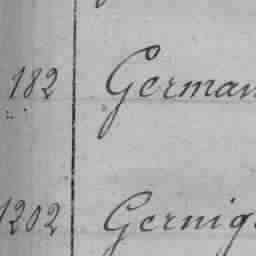 182 German
1202 Gernig